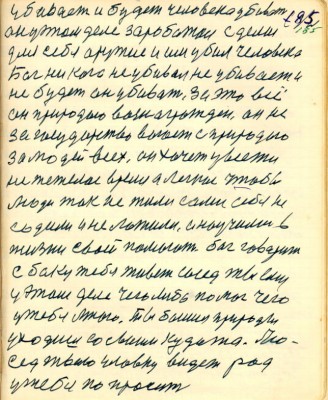 убивает и будет человека убивать
он у этом деле заработал сделал
для себя оружие и им убил человека
Бог никого не убивал не убивает и
не будет он убивать, за это всё
он природою вознагражден, он не
за государство воюет с природою
за людей всех, он хочет увести
не тяжелое время а легкое чтобы
люди так не жили сами себя не
садили и не ложили, а научились в
жизни своей помогать бог говорит
с боку тебя живет сосед ты ему
у этом деле чего либо помог чего
у тебя много. Ты больше природы
уходил со своим нудила. По-
сед человек видит рад
у тебя попросить
185